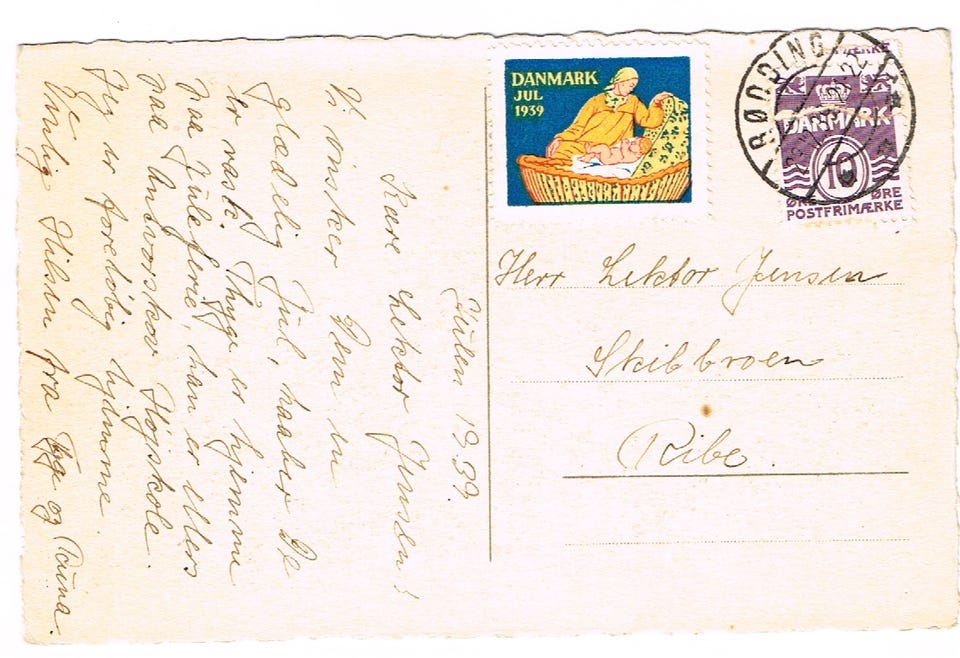 DANMARK
JUL
1939
RØDDING
DANMARK
10
ØRE ØRE
POSTFRIMÆRKE
Herr Lektor Jensen
Skibbroen
Ribe.
Julen 1939.
Kære Lektor Jensen!
Vi ønsker Dem en
glædelig Jul, haaber De
er rask. Thyge er hjemme
paa Juleferie, han er ellers
paa Antvorskov Højskole.
Jes er foreløbig hjemme.
Venlig Hilsen fra og